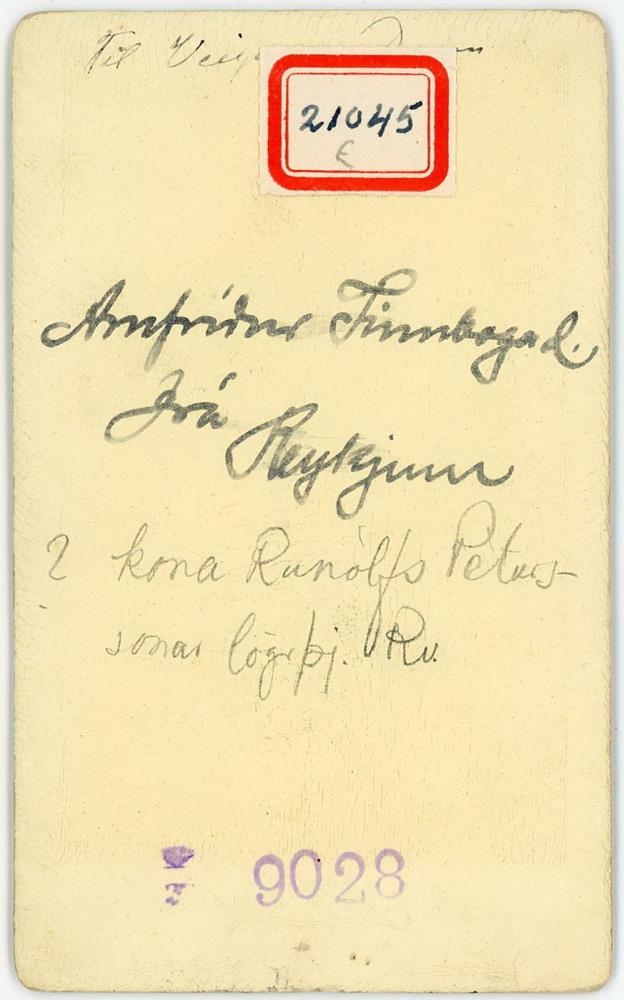 Til
21045
E
Arnfríður Finnbogad.
frá
Reykjum
? kona Runólfs Péturs-
sonar lögrþj. Rv.
9028